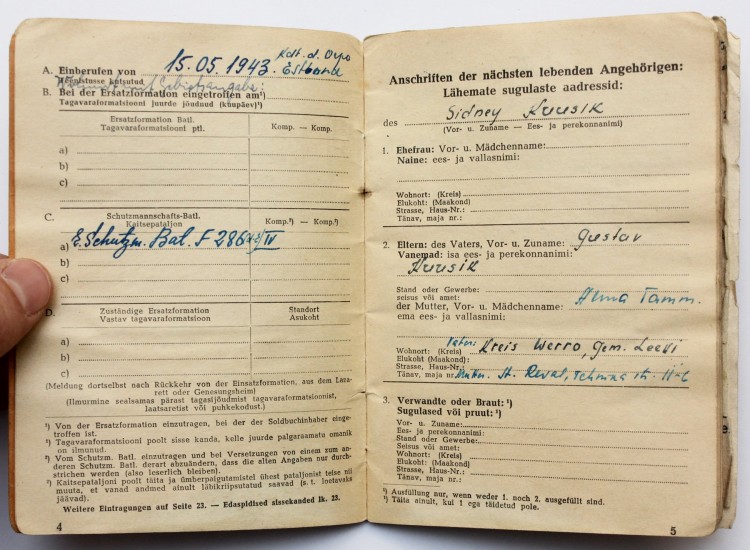 A. Einberufen von 15.05.1943. Kdt. d. Orpo
Teenistusse kutsutud Estland
B. Bei der Ersatzformation eingetroffen am¹)
Tagavaraformatsiooni juurde jõudnud (kuupäev)¹)
Ersatzformation Batl. Komp. — Komp.
Tagavaraformatsiooni ptl.
a)
b)
c)
C. Schutzmannschafts-Batl. Komp.³) — Komp.³)
Kaitsepataljon
a) E. Schutzm. Bat. F 286
b)
c)
D. Zuständige Ersatzformation Standort
Vastav tagavaraformatsioon Asukoht
a)
b)
c)
(Meldung dortselbst nach Rückkehr von der Einsatzformation, aus dem Laza-
rett oder Genesungsheim)
(Ilmurnine sealsamas pärast tagasijõudmist tagavaraformatsioonist,
laatsaretist või puhkekodust.)
¹) Von der Ersatzformation einzutragen, bei der der Soldbuchinhaber einge-
troffen ist.
²) Tagavaraformatsiooni poolt sisse kanda, kelle juurde palgaraamatu omanik
on ilmunud.
³) Vom Schutzm. Batl. einzutragen und bei Versetzungen von einem zum an-
deren Schutzm. Batl. derart abzuändern, dass die alten Angaben nur durch-
strichen werden (also leserlich bleiben).
³) Kaitsepataljoni poolt täita ja ümberpaigutamistel ühest pataljonist teise nii
muuta, et vanad andmed ainult läbikriipsutatud saavad (s. t. loetavaks
jäävad).
Weitere Eintragungen auf Seite 23. — Edaspidised sissekanded lk. 23.
4
Anschriften der nächsten lebenden Angehörigen:
Lähemate sugulaste aadressid:
des Sidney Kuusik
(Vor- u. Zuname — Ees- ja perekonnanimi)
1. Ehefrau: Vor- u. Mädchenname:
Naine: ees- ja vallasnimi:
Wohnort: (Kreis)
Elukoht: (Maakond)
Strasse, Haus-Nr.:
Tänav, maja nr.:
2. Eltern: des Vaters, Vor- u. Zuname: Gustav
Vanemad: isa ees- ja perekonnanimi:
Kuusik
Stand oder Gewerbe:
seisus või amet:
der Mutter, Vor- u. Mädchenname: Alma Tamm.
ema ees- ja vallasnimi:
Vater:
Wohnort: (Kreis) Kreis Werro, Gem. Leevi
Elukoht (Maakond):
Strasse, Haus-Nr.:
Tänav, maja nr.: Mutter. St. Reval,
3. Verwandte oder Braut: ¹)
Sugulased või pruut: ¹)
Vor- u. Zuname:
Ees- ja perekonnanimi:
Stand oder Gewerbe:
Seisus või amet:
Wohnort: (Kreis)
Elukoht: (Maakond)
Strasse, Haus-Nr.:
Tänav, maja nr.:
¹) Ausfüllung nur, wenn weder 1. noch 2. ausgefüllt sind.
¹) Täita ainult, kui 1 ega täidetud pole.
5